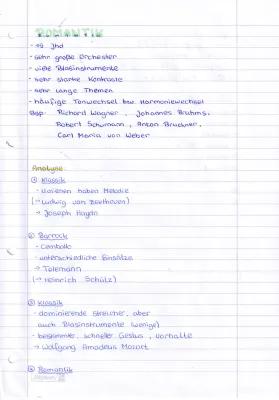 ROMANTIK
- 19 Jhd
- sehr große Orchester
- viele Blasinstrumente
- sehr starke Kontraste
- sehr lange Themen
- häufige Tonwechsel bzw. Harmoniewechsel
Bsp. Richard Wagner, Johannes Brahms,
Robert Schumann, Anton Bruckner,
Carl Maria von Weber
Analyse:
① Klassik
- Klavieren haben Melodie
(→ Ludwig van Beethoven)
→ Joseph Haydn
② Barrock
- Cembalo
- unterschiedliche Einsätze
→ Telemann
(→ Heinrich Schütz)
③ Klassik
- dominierende Streicher, aber
auch Blasinstrumente (wenige)
- bestimmter, schneller Gestus, Vorhalte
→ Wolfgang Amadeus Mozart
④ Romantik